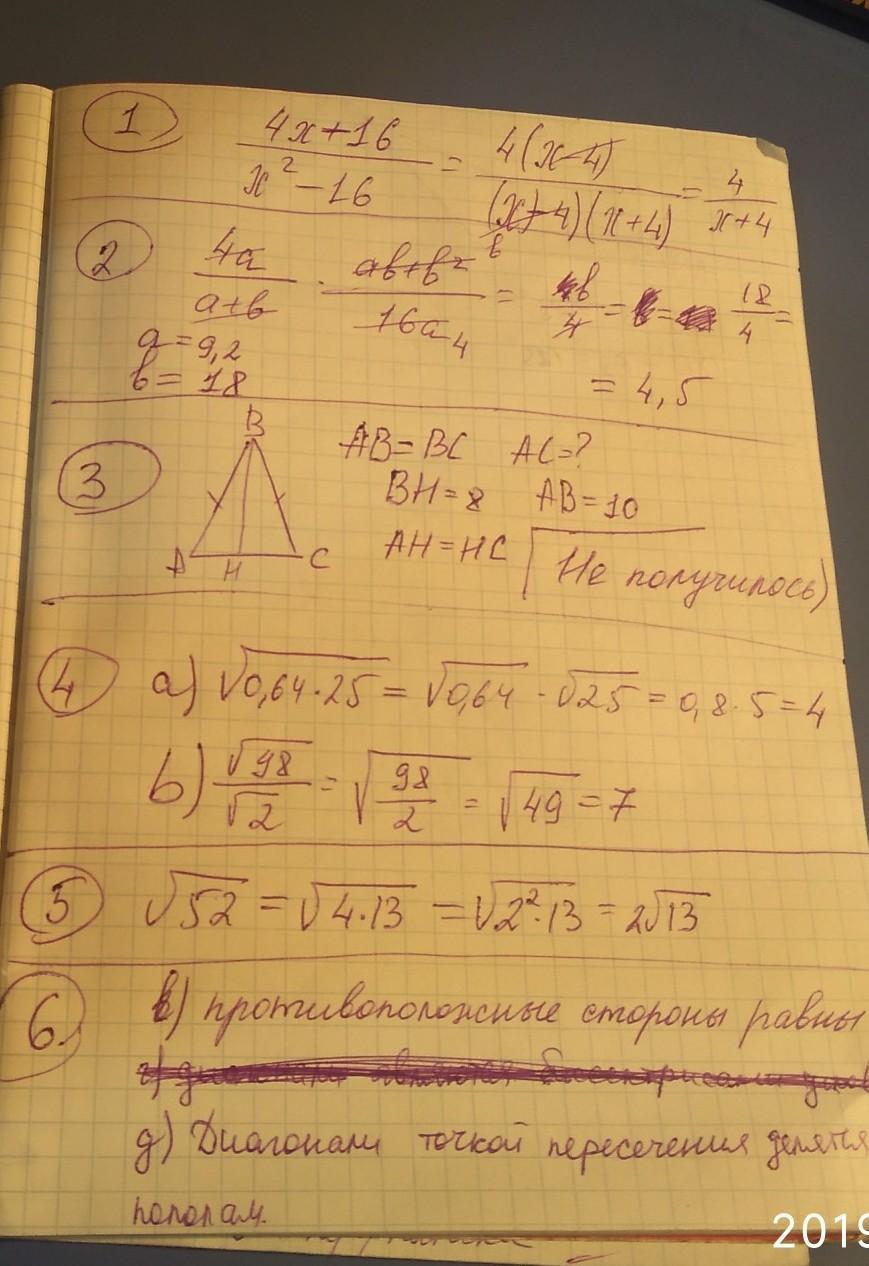 1 (4x+16)/(x²-16) = 4(x-4)/((x-4)(x+4)) = 4/(x+4)
2 4a/(a+b) · (ab+b²)/16a = b/4 = 18/4 =
b
4
a = 9,2
b = 18
= 4,5
3 B AB = BC AC = ?
BH = 8 AB = 10
A H C AH = HC Не получилось)
4 a) √0,64·25 = √0,64 · √25 = 0,8·5 = 4
b) √98/√2 = √(98/2) = √49 = 7
5 √52 = √4·13 = √2²·13 = 2√13
6. в) противоположные стороны равны
д) Диагонали точкой пересечения делятся
пополам.
2019